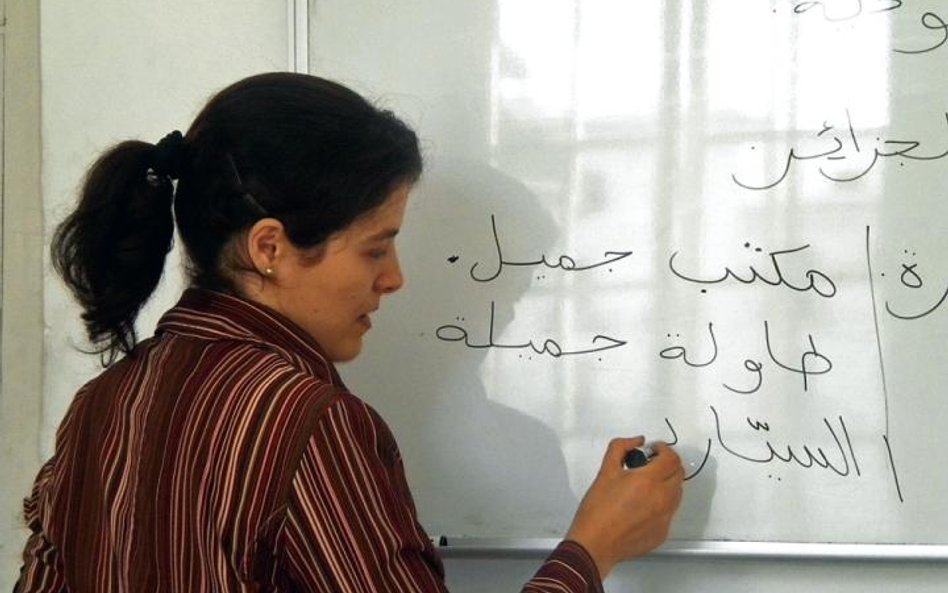 لجزائر
مكتب جميل.
طاولة جميلة
السيّار